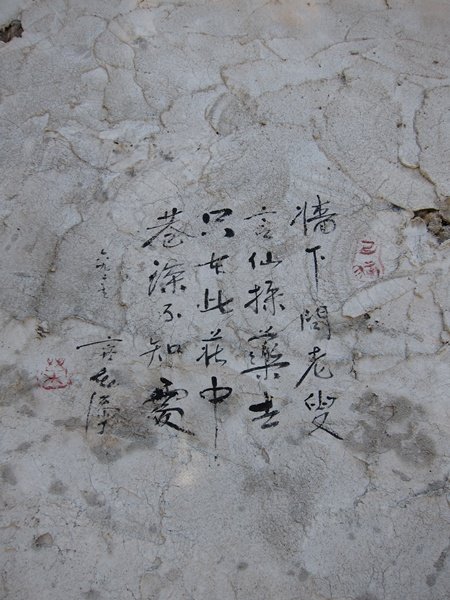 牆下問老叟
言仙採藥去
只在此莊中
巷深不知處